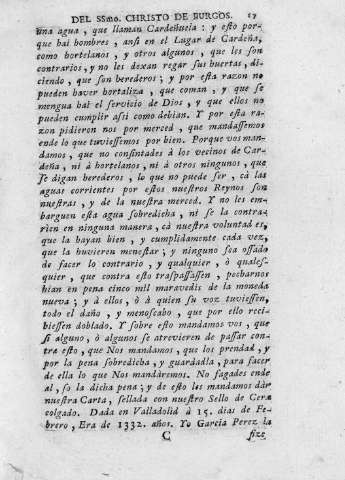 DEL SSmo. CHRISTO DE BURGOS. 17
una agua, que llaman Cardeñuela: y esto por-
que hai hombres, ansi en el Lugar de Cardeña,
como hortelanos, y otros algunos, que les son
contrarios, y no les dexan regar sus huertas, di-
ciendo, que son herederos; y por esta razon no
pueden haver hortaliza, que coman, y que se
mengua hai el servicio de Dios, y que ellos no
pueden cumplir assi como debian. Y por esta ra-
zon pidieron nos por merced, que mandassemos
ende lo que tuviessemos por bien. Porque vos man-
damos, que no consintades à los vecinos de Car-
deña, ni à hortelanos, ni à otros ningunos, que
se digan herederos, lo que no puede ser, cà las
aguas corrientes por estos nuestros Reynos son
nuestras, y de la nuestra merced. Y no les em-
barguen esta agua sobredicha, ni se la contra-
rien en ninguna manera, cà nuestra voluntad es,
que la hayan bien, y cumplidamente cada vez,
que la huvieren menestar; y ninguno sea ossado
de facer lo contrario, y qualquier, ò quales-
quier, que contra esto traspassassen, pecharnos
hian en pena cinco mil maravedis de la moneda
nueva; y à ellos, ò à quien su voz tuviessen,
todo el daño, y menoscabo, que por ello reci-
biessen doblado. Y sobre esto mandamos vos, que
si alguno, ò algunos se atrevieren de passar con-
tra esto, que Nos mandamos, que los prendad, y
por la pena sobredicha, y guardadla, para facer
de ella lo que Nos mandáremos. No fagades ende
al, so la dicha pena; y de esto les mandamos dàr
nuestra Carta, sellada con nuestro Sello de Cera
colgado. Dada en Valladolid à 15. dias de Fe-
brero, Era de 1332. años. Yo Garcia Perez la
C fize